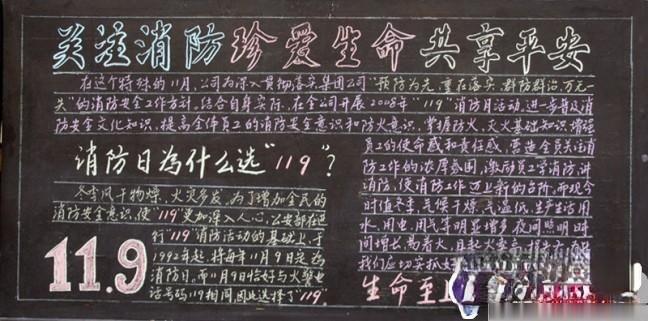 关注消防 珍爱生命 共享平安
在这个特殊的11月,公司为深入贯彻落实集团公司“预防为先,重在落实,群防群治,万无一
失”的消防安全工作方针,结合自身实际,在全公司开展2008年“119”消防月活动,进一步普及消
防安全文化知识,提高全体员工的消防安全意识和防火意识,掌握防火、灭火基础知识,增强
员工的使命感和责任感,营造全员关注消
防工作的浓厚氛围,激励员工学消防,讲
消防,使消防工作迈上新的台阶。而现今
时值冬季,气候干燥,气温低,生产生活用
水、用电、用气等明显增多,夜间照明时
间增长,高着火,且起火
我们应切实
生命至上
消防日为什么选“119”?
冬季风干物燥,火灾多发,为了增加全民的
消防安全意识,使“119”更加深入人心,公安部在进
行“119”消防活动的基础上,于
1992年起,将每年11月9日定为
消防日。而11月9日恰好与火警电
话号码119相同,因此选择了“119”。
11.9